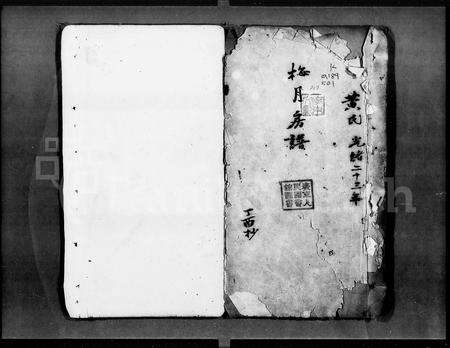 黄氏 光緒二十三年
梅月房譜
丁酉抄
K
0.189
501